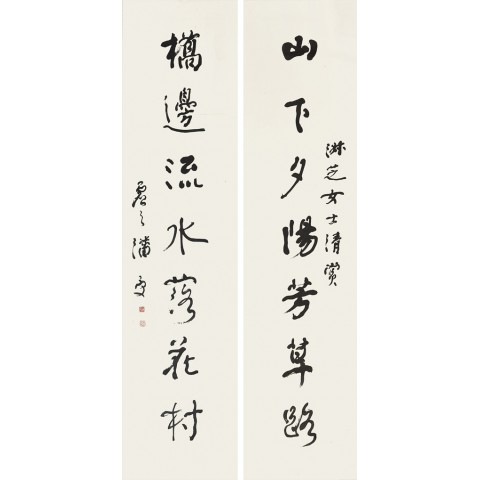 山下夕陽芳草路
淑芝女士清賞
橋邊流水落花村
虛之潘受